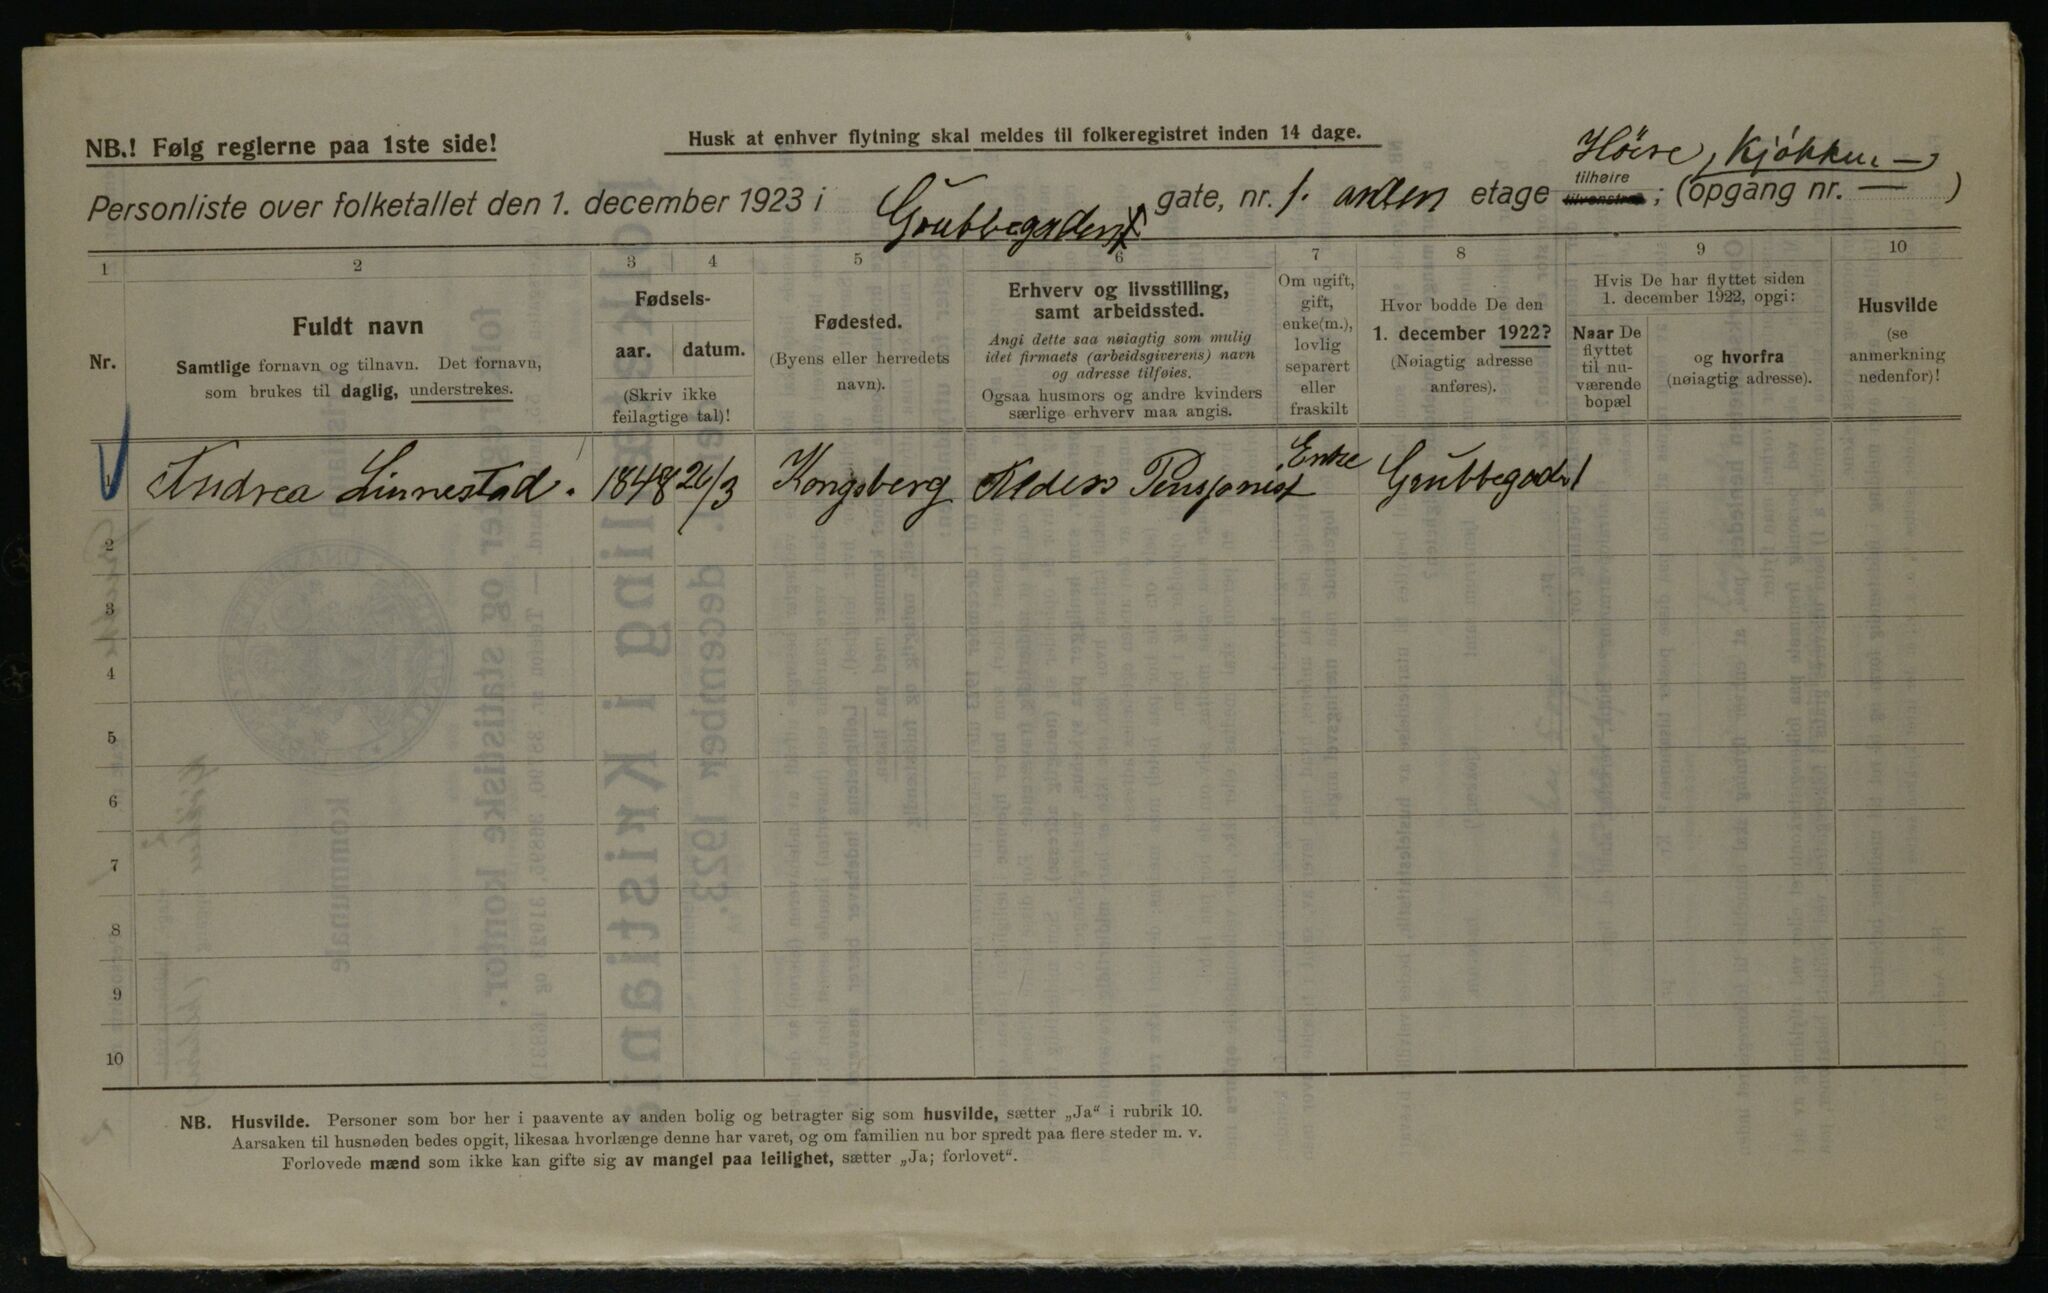 NB.! Følg reglerne paa 1ste side!
Husk at enhver flytning skal meldes til folkeregistret inden 14 dage.
Høire, Kjøkken —
Personliste over folketallet den 1. december 1923 i Grubbegaden gate, nr. 1. anden etage tilhøire tilvenstre; (opgang nr. — )
1 2 3 4 5 6 7 8 9 10
Nr.
Fuldt navn
Samtlige fornavn og tilnavn. Det fornavn,
som brukes til daglig, understrekes.
Fødsels-
aar. datum.
(Skriv ikke
feilagtige tal)!
Fødested.
(Byens eller herredets
navn).
Erhverv og livsstilling,
samt arbeidssted.
Angi dette saa nøiagtig som mulig
idet firmaets (arbeidsgiverens) navn
og adresse tilføies.
Ogsaa husmors og andre kvinders
særlige erhverv maa angis.
Om ugift,
gift,
enke(m.),
lovlig
separert
eller
fraskilt
Hvor bodde De den
1. december 1922?
(Nøiagtig adresse
anføres).
Hvis De har flyttet siden
1. december 1922, opgi:
Naar De
flyttet
til nu-
værende
bopæl
og hvorfra
(nøiagtig adresse).
Husvilde
(se
anmerkning
nedenfor)!
1 Andrea Linnestad. 1848 26/3 Kongsberg Alders Pensjonist Enke Grubbegad 1
2
3
4
5
6
7
8
9
10
NB. Husvilde. Personer som bor her i paavente av anden bolig og betragter sig som husvilde, sætter „Ja“ i rubrik 10.
Aarsaken til husnøden bedes opgit, likesaa hvorlænge denne har varet, og om familien nu bor spredt paa flere steder m. v.
Forlovede mænd som ikke kan gifte sig av mangel paa leilighet, sætter „Ja; forlovet“.